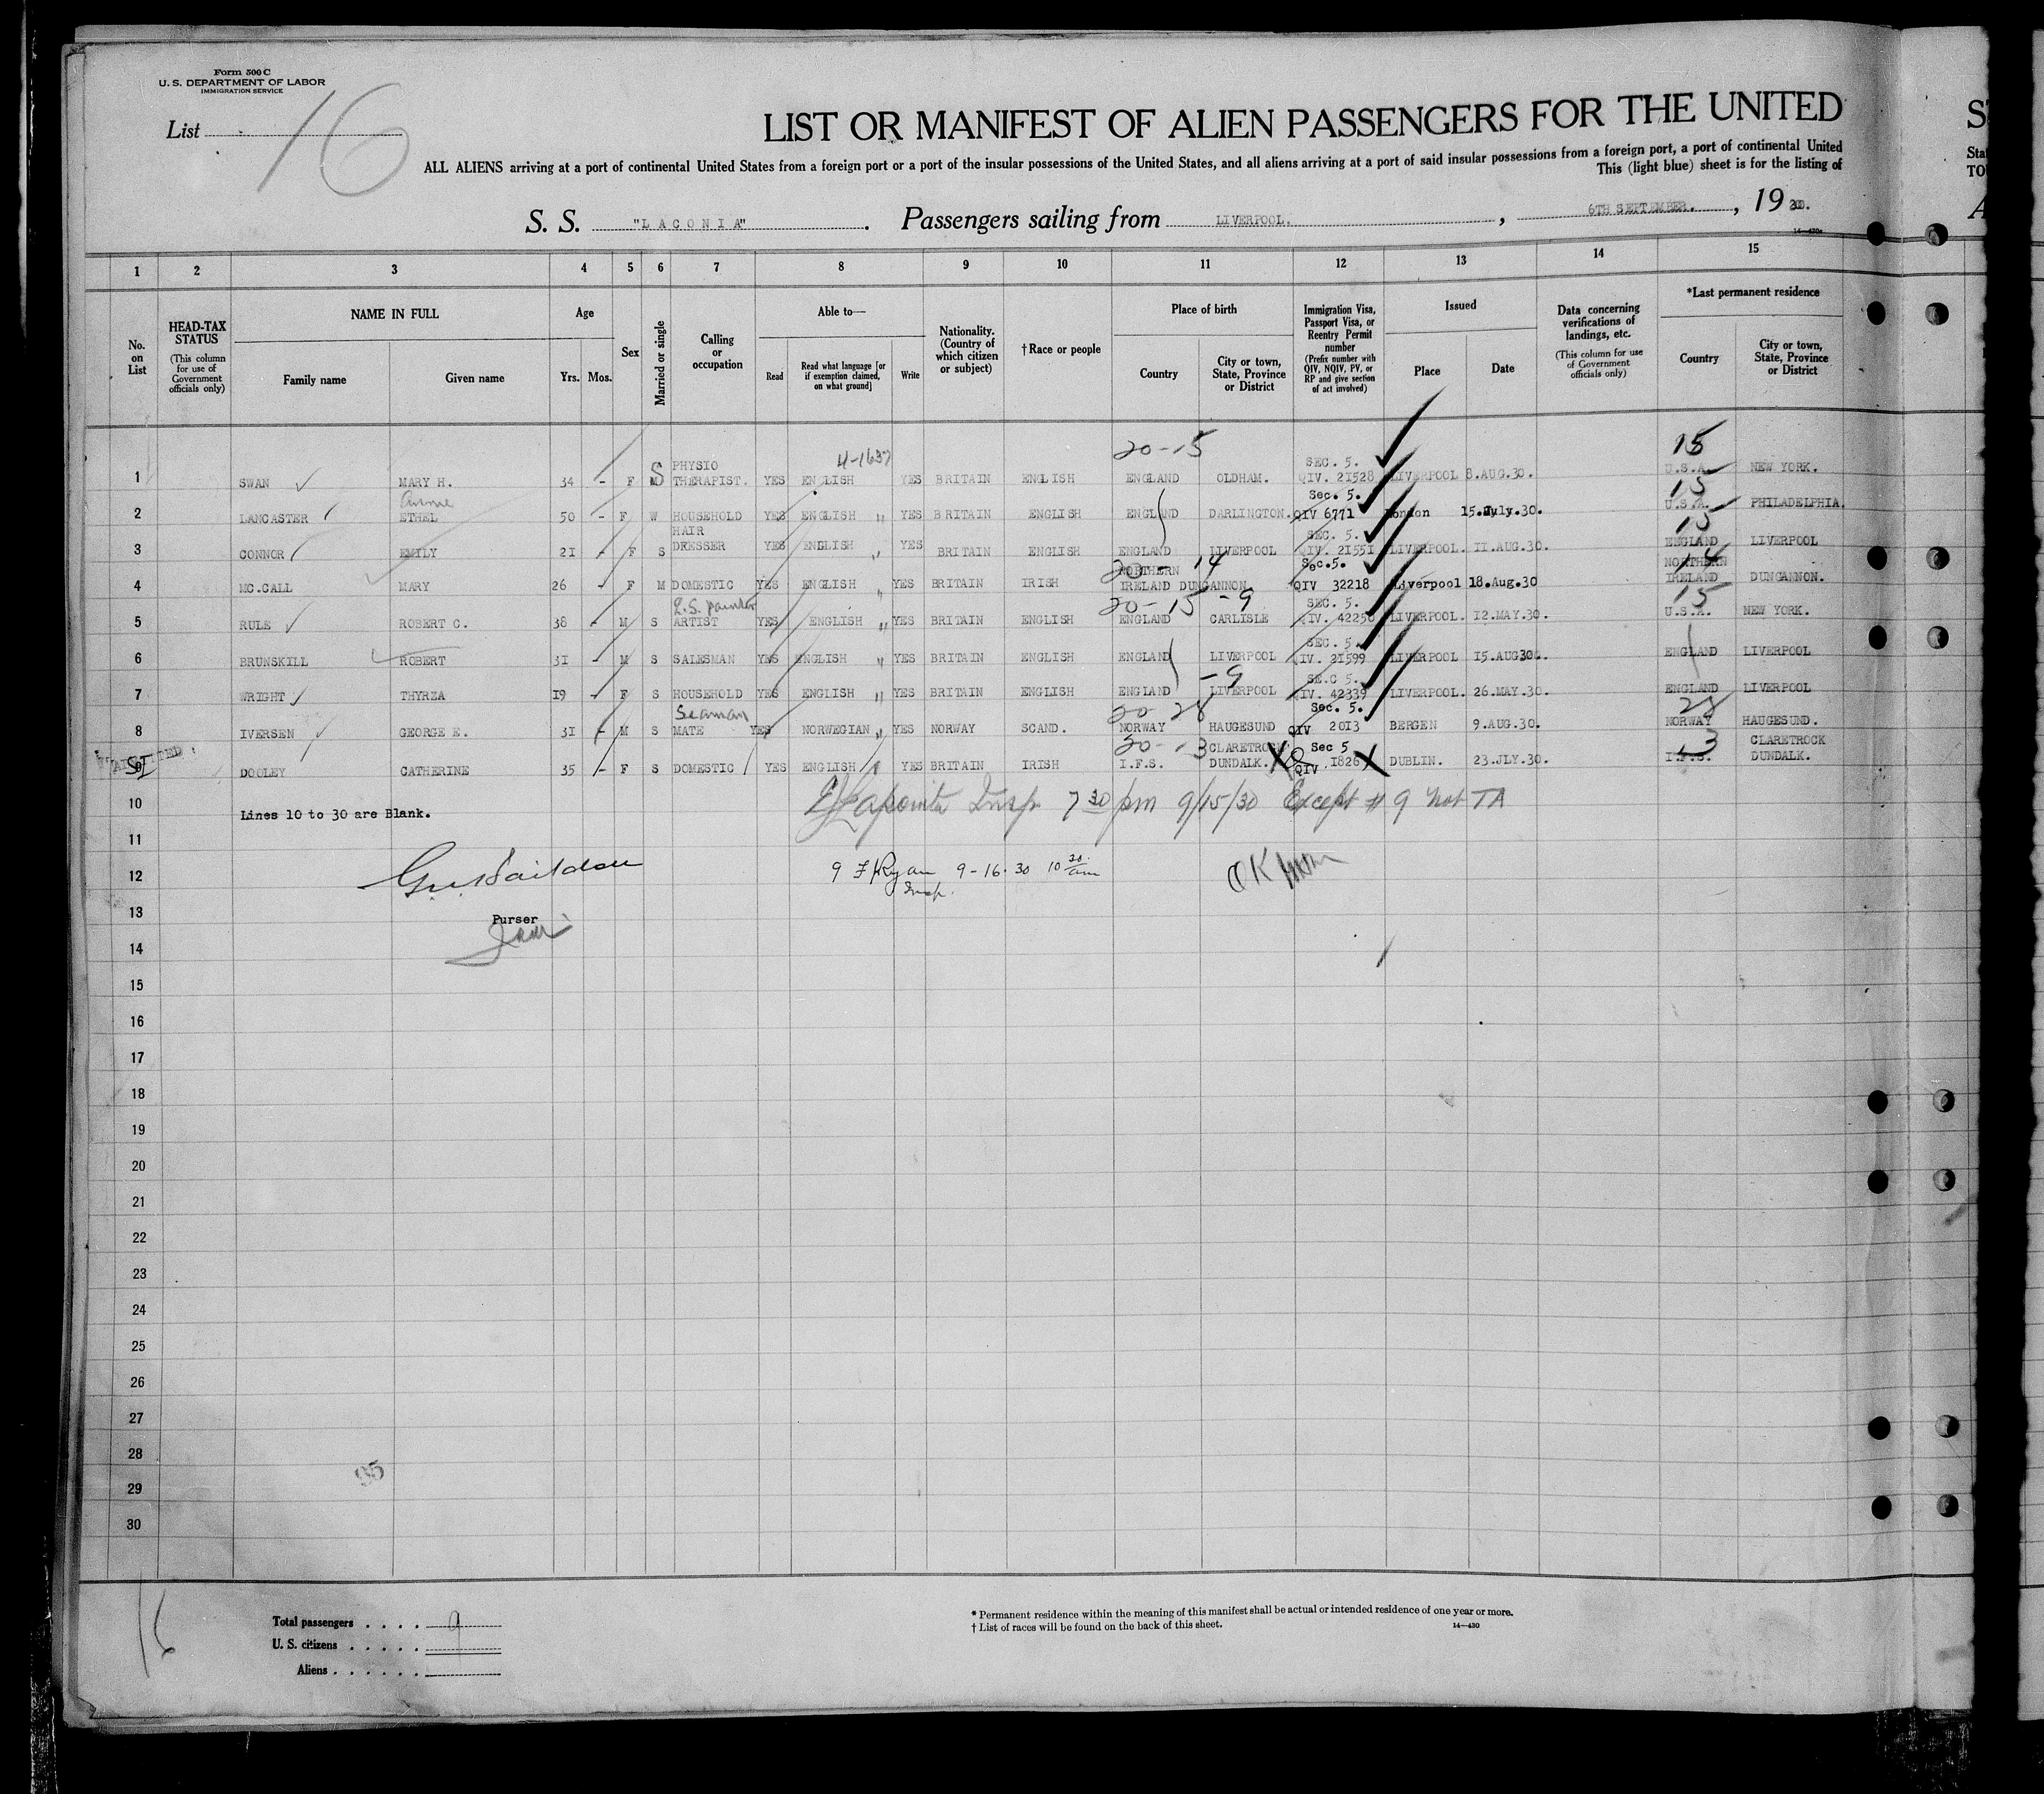 Form 500 C
U. S. DEPARTMENT OF LABOR
IMMIGRATION SERVICE
List 16
LIST OR MANIFEST OF ALIEN PASSENGERS FOR THE UNITED
ALL ALIENS arriving at a port of continental United States from a foreign port or a port of the insular possessions of the United States, and all aliens arriving at a port of said insular possessions from a foreign port, a port of continental United
This (light blue) sheet is for the listing of
S. S. "LACONIA". Passengers sailing from LIVERPOOL. , 6TH SEPTEMBER. , 1930.
14—430a
1 2 3 4 5 6 7 8 9 10 11 12 13 14 15
No. on List
HEAD-TAX STATUS (This column for use of Government officials only)
NAME IN FULL
Family name Given name
Age
Yrs. Mos.
Sex
Married or single
Calling or occupation
Able to—
Read Read what language [or if exemption claimed, on what ground] Write
Nationality. (Country of which citizen or subject)
† Race or people
Place of birth
Country City or town, State, Province or District
Immigration Visa, Passport Visa, or Reentry Permit number (Prefix number with QIV, NQIV, PV, or RP and give section of act involved)
Issued
Place Date
Data concerning verifications of landings, etc. (This column for use of Government officials only)
*Last permanent residence
Country City or town, State, Province or District
4-1637 20-15 15
1 SWAN MARY H. 34 - F M S PHYSIO THERAPIST. YES ENGLISH YES BRITAIN ENGLISH ENGLAND OLDHAM. SEC. 5. QIV. 21528 LIVERPOOL 8.AUG.30. U.S.A. NEW YORK.
Annie 15
2 LANCASTER ETHEL 50 - F W HOUSEHOLD YES ENGLISH " YES BRITAIN ENGLISH ENGLAND DARLINGTON. Sec. 5. QIV 6771 London 15.July.30. U.S.A. PHILADELPHIA.
15
3 CONNOR EMILY 21 - F S HAIR DRESSER YES ENGLISH " YES BRITAIN ENGLISH ENGLAND LIVERPOOL SEC. 5. QIV. 21551 LIVERPOOL. 11.AUG.30. ENGLAND LIVERPOOL
20-14 14
4 MC.CALL MARY 26 - F M DOMESTIC YES ENGLISH " YES BRITAIN IRISH NORTHERN IRELAND DUNGANNON. Sec.5. QIV 32218 Liverpool 18.Aug.30 NORTHERN IRELAND DUNGANNON.
painter 20-15-9 15
5 RULE ROBERT C. 38 - M S ARTIST YES ENGLISH " YES BRITAIN ENGLISH ENGLAND CARLISLE SEC. 5. QIV. 42256 LIVERPOOL. 12.MAY.30. U.S.A. NEW YORK.
6 BRUNSKILL ROBERT 31 - M S SALESMAN YES ENGLISH " YES BRITAIN ENGLISH ENGLAND LIVERPOOL SEC. 5. QIV. 21599 LIVERPOOL 15.AUG30. ENGLAND LIVERPOOL
-9
7 WRIGHT THYRZA 19 - F S HOUSEHOLD YES ENGLISH " YES BRITAIN ENGLISH ENGLAND LIVERPOOL SE.C 5. QIV. 42339 LIVERPOOL. 26.MAY.30. ENGLAND LIVERPOOL
Seaman 20 28 28
8 IVERSEN GEORGE E. 31 - M S MATE YES NORWEGIAN " YES NORWAY SCAND. NORWAY HAUGESUND Sec. 5. QIV 2013 BERGEN 9.AUG.30. NORWAY HAUGESUND.
SI 20-13 3
9 DOOLEY CATHERINE 35 - F S DOMESTIC YES ENGLISH YES BRITAIN IRISH I.F.S. CLARETROCK DUNDALK. Sec 5 QIV 1826 DUBLIN. 23.JLY.30. I.F.S. CLARETROCK DUNDALK.
10 Lines 10 to 30 are Blank. Lapointe Insp 7 30 pm 9/15/30 Except # 9 not TA
11
12 9 F Ryan Insp. 9-16-30 10 30 am OK
13 Purser
14
15
16
17
18
19
20
21
22
23
24
25
26
27
28
95
29
30
16
Total passengers . . . . 9
U. S. citizens . . . . .
Aliens . . . . . .
* Permanent residence within the meaning of this manifest shall be actual or intended residence of one year or more.
† List of races will be found on the back of this sheet.
14—430